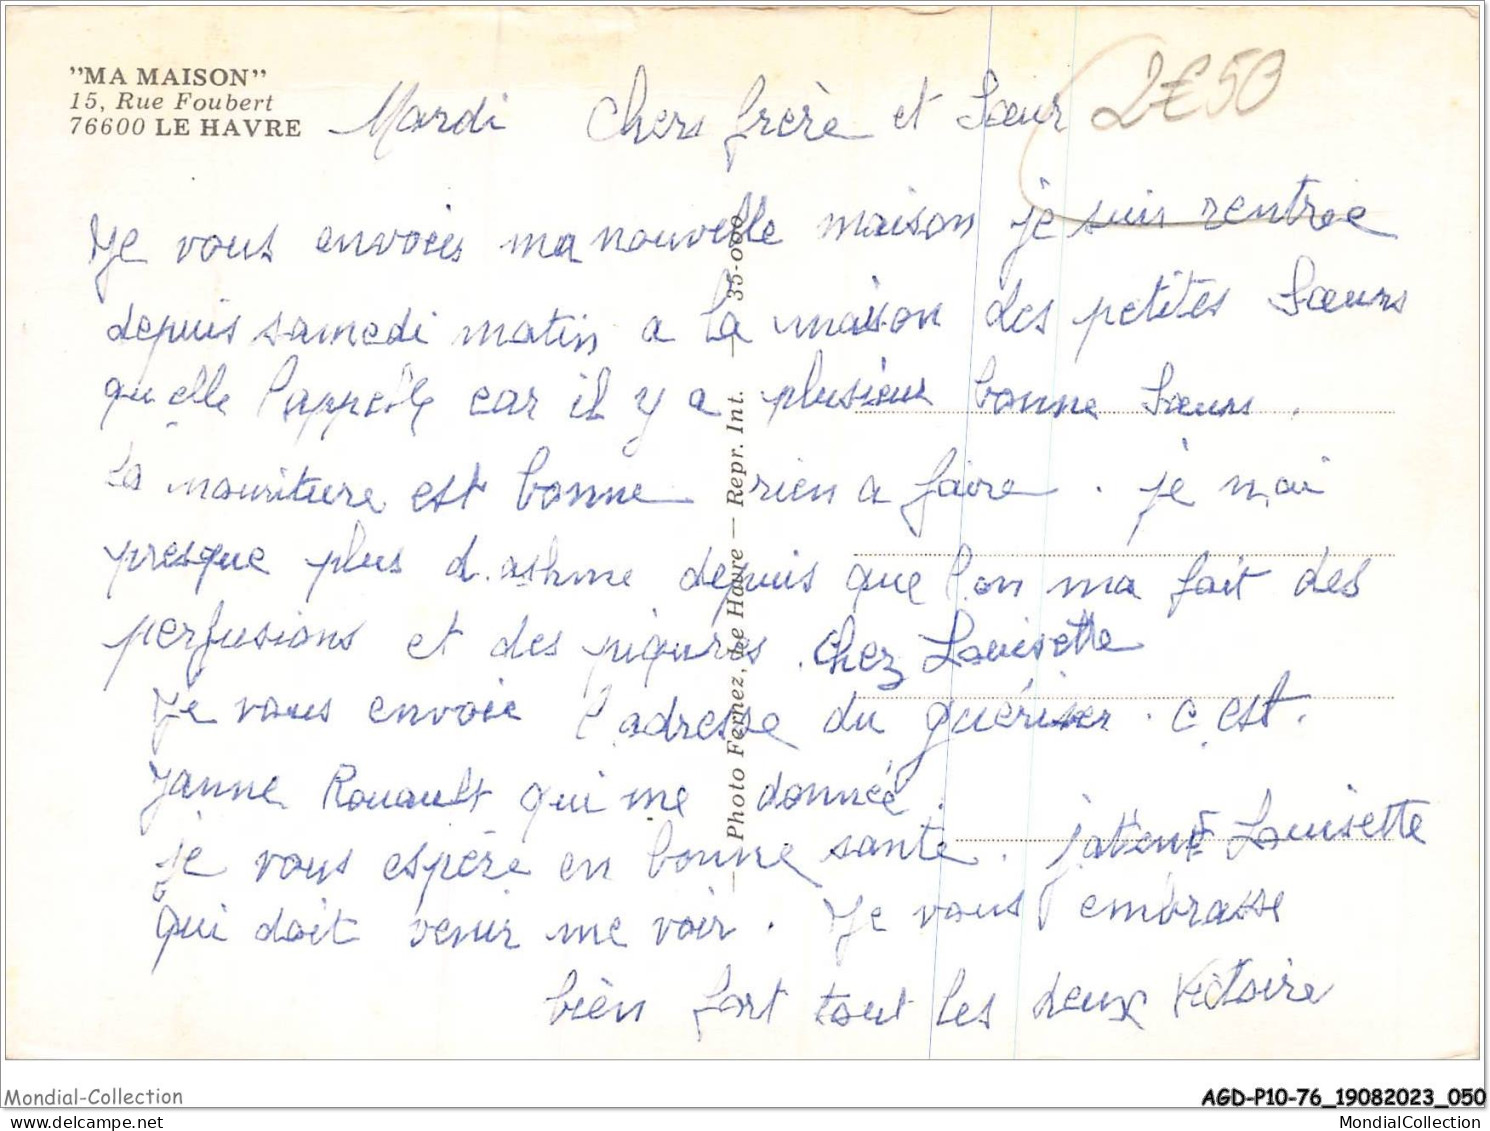 "MA MAISON"
15, Rue Foubert
76600 LE HAVRE
Mardi Chers frère et Sœur
2€50
Je vous envoies ma nouvelle maison je suis rentree
depuis samedi matin a la maison des petites Sœurs
qu'elle l'appelle car il y a plusieur bonne Sœurs.
La nouriture est bonne rien a faire. je n,ai
presque plus d.ashme depuis que l'on ma fait des
perfusions et des piqures. chez Louisette
Je vous envoie l'adresse du guériser. c est.
Janne Rouault qui me donnée.
je vous espère en bonne santé. j'atent Louisette
qui doit venir me voir. Je vous embrasse
bièn fort tout les deux Victoire
— Photo Fernez, Le Havre — Repr. Int. — 35-000
Mondial-Collection
AGD-P10-76_19082023_050
www.delcampe.net
MondialCollection